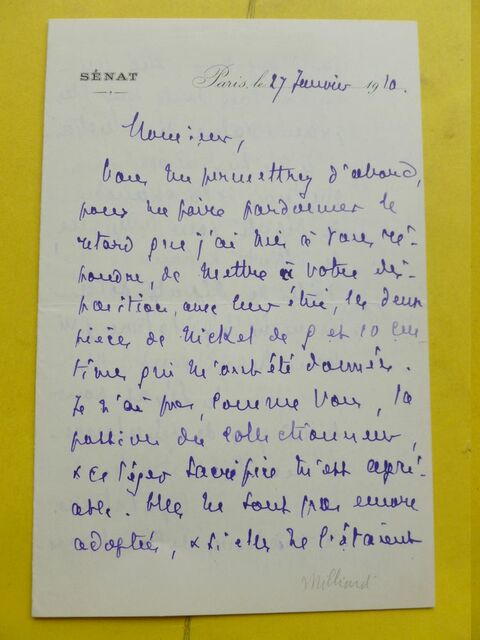 SÉNAT
Paris, le 27 Janvier 1910.
Monsieur,
Vous me permettrez d'abord,
pour me faire pardonner le
retard que j'ai mis à vous ré-
pondre, de mettre à votre dis-
position, avec leur étui, les deux
pièces de Nickel de 5 et 10 cen-
times qui m'ont été données.
Je n'ai pas, comme vous, la
passion du collectionneur,
& ce léger sacrifice m'est agré-
able. Elles ne sont pas encore
adoptées, & si elles ne l'étaient
Milliard